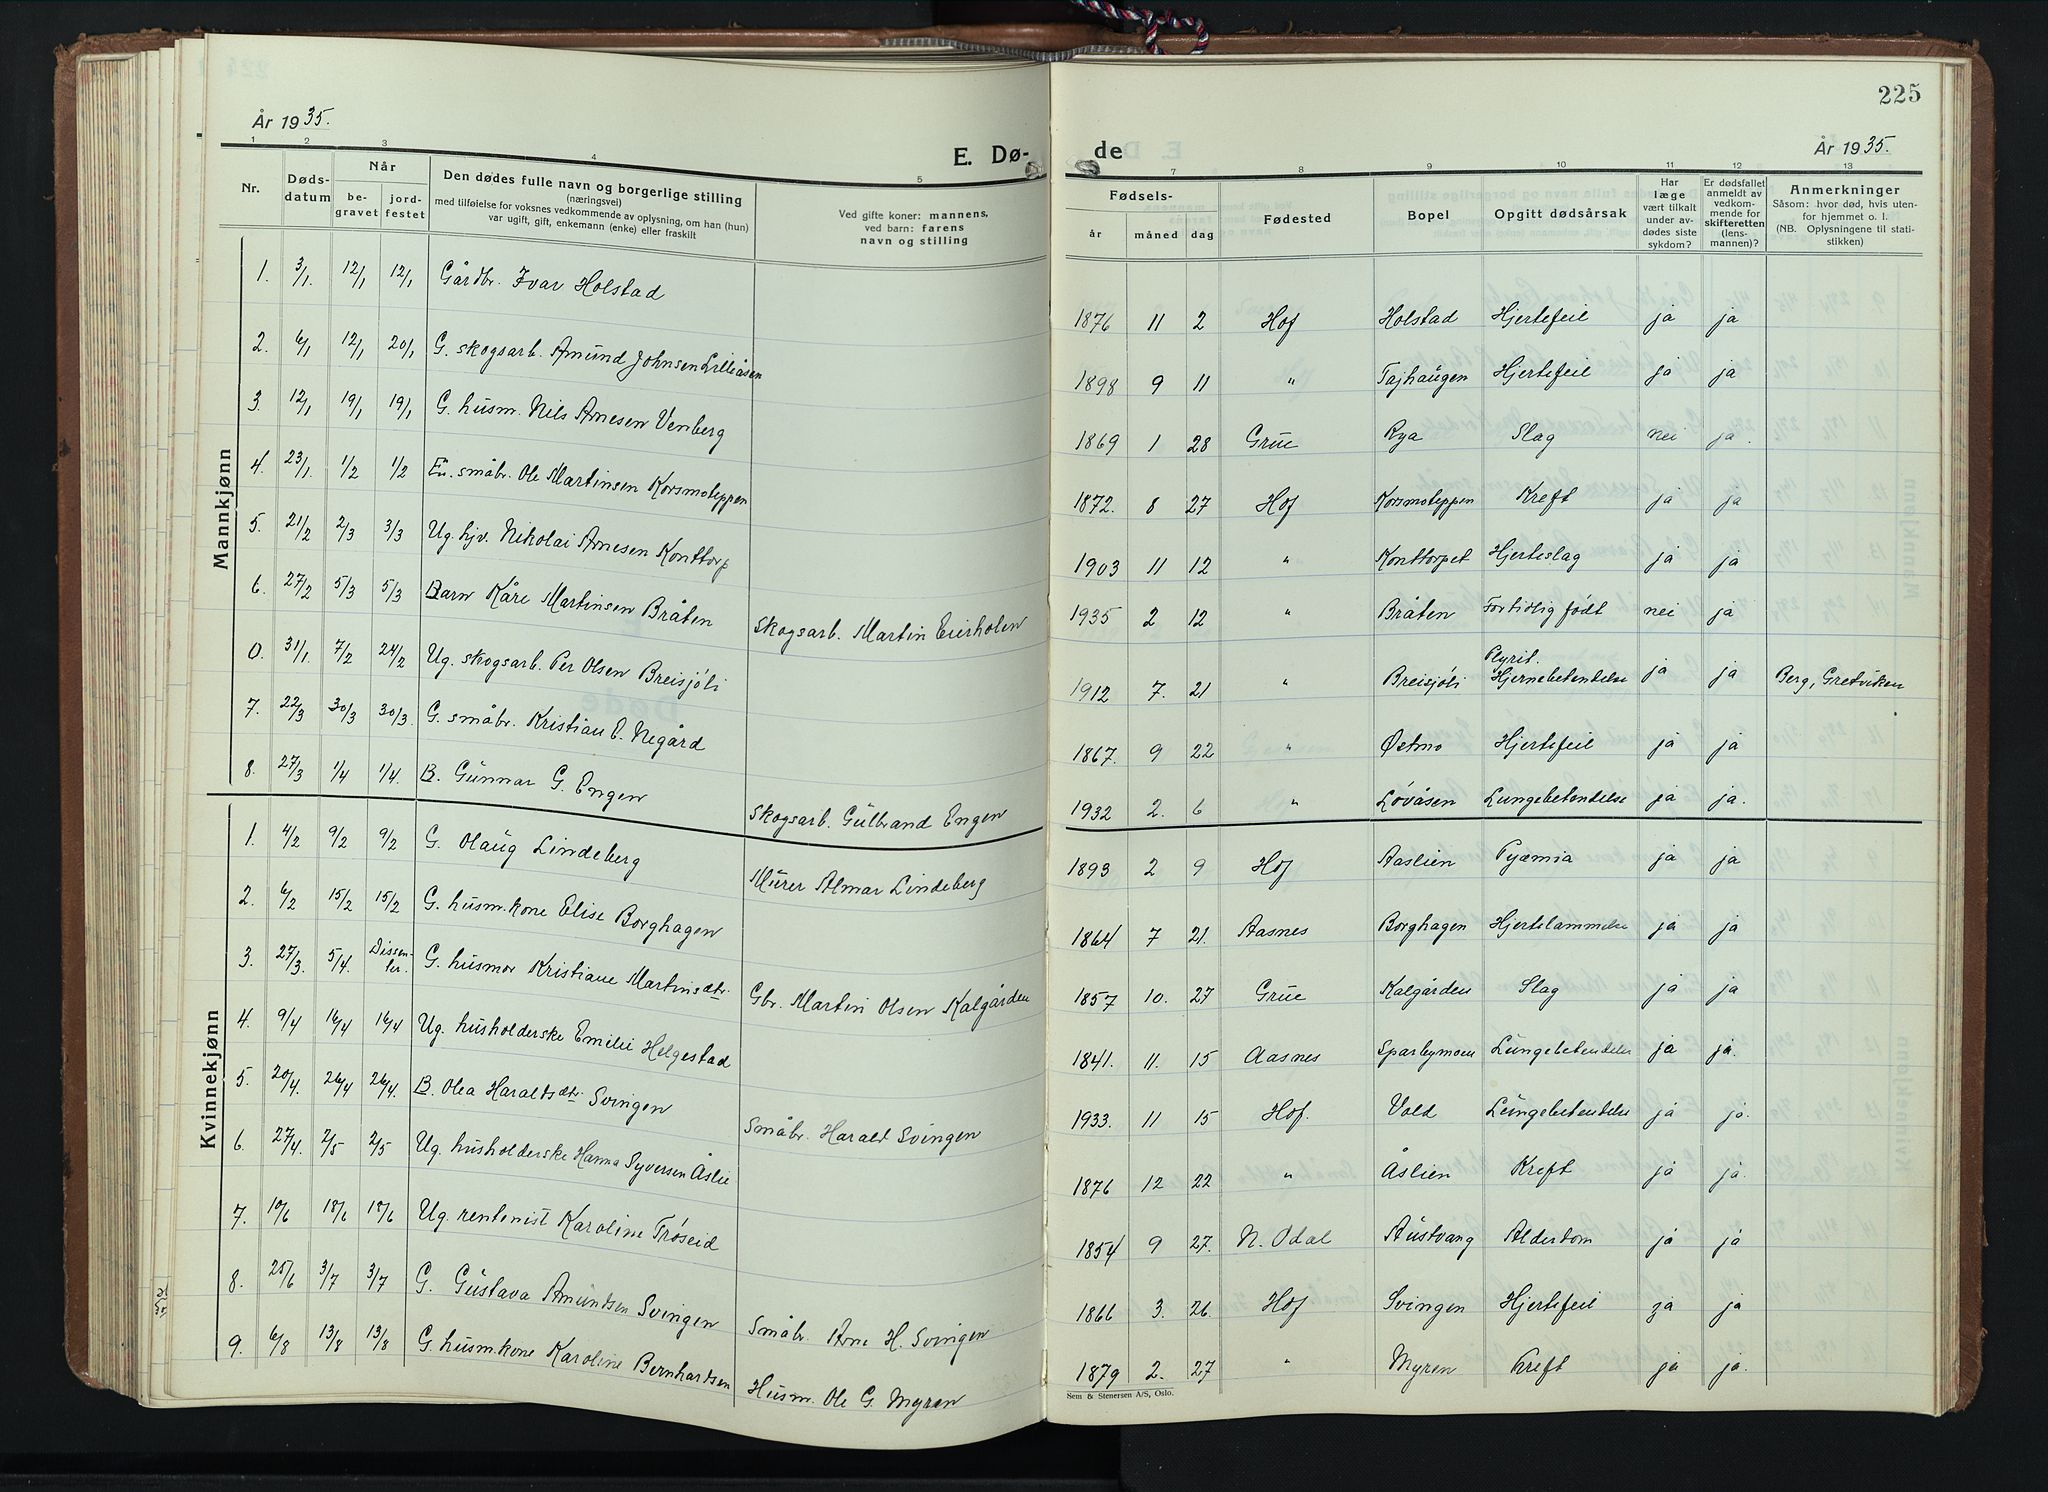 225
År 1935.
E. Dø-
de
År 1935.
1 2 3 4 5
7 8 9 10 11 12 13
Nr.
Døds-
datum
Når
be-
gravet
jord-
festet
Den dødes fulle navn og borgerlige stilling
(næringsvei)
med tilføielse for voksnes vedkommende av oplysning, om han (hun)
var ugift, gift, enkemann (enke) eller fraskilt
Ved gifte koner: mannens,
ved barn: farens
navn og stilling
Fødsels-
år måned dag
Fødested
Bopel
Opgitt dødsårsak
Har
læge
vært tilkalt
under av-
dødes siste
sykdom?
Er dødsfallet
anmeldt av
vedkom-
mende for
skifteretten
(lens-
mannen)?
Anmerkninger
Såsom: hvor død, hvis uten-
for hjemmet o. l.
(NB. Oplysningene til stati-
stikken)
Mannkjønn
1. 3/1. 12/1 12/1 Gårdbr. Ivar Holstad 1876 11 2 Hof Holstad Hjertefeil ja ja
2. 6/1 12/1 20/1 G. skogsarb. Amund Johnsen Lilleåsen 1898 9 11 " Tajhaugen Hjertefeil ja ja
3. 12/1 19/1 19/1 G. husm. Nils Arnesen Venberg 1869 1 28 Grue Rya Slag nei ja.
4. 23/1. 1/2 1/2 En. småbr. Ole Martinsen Korsmoteppen 1872. 8 27 Hof Korsmoteppen Kreft ja ja
5. 21/2 2/3 3/3 Ug. hjv. Nikolai Arnesen Konttorp 1903 11 12 " Konttorpet Hjerteslag ja ja
6. 27/2 5/3 5/3 Barn Kåre Martinsen Bråten Skogsarb. Martin Eierholen 1935 2 12 " Bråten For tidlig født nei ja
0. 31/1. 7/2 24/2 Ug. skogsarb. Per Olsen Breisjöli 1912 7. 21 " Breisjöli Plyrit. Hjernebetendelse ja ja Berg, Gretviken
7. 22/3 30/3 30/3. G. småbr. Kristian E. Negård 1867. 9 22 " Østmo Hjertefeil ja ja
8. 27/3 1/4 1/4. B. Gunnar G. Engen Skogsarb. Gulbrand Engen 1932 2. 6 " Lövåsen Lungebetendelse ja ja.
Kvinnekjønn
1. 4/2 9/2 9/2 G. Olaug Lindeberg Murer Almar Lindeberg 1893 2 9 Hof Aaslien Pyæmia ja ja
2. 6/2 15/2 15/2 G. husm.kone Elise Borghagen 1864 7 21. Aasnes Borghagen Hjertelammelse ja ja
3. 27/3. 5/4. Dissen-
ter. G. husmor Kristiane Martinsdtr. Gbr. Martin Olsen Kalgården 1857 10. 27 Grue Kalgården Slag ja ja
4. 9/4 16/4 16/4 Ug. husholderske Emilie Helgestad 1841. 11. 15 Aasnes Sparbymoen Lungebetendelse ja ja.
5. 20/4. 26/4 26/4. B. Olea Haraldsdtr. Svingen Småbr. Harald Svingen 1933. 11 15 Hof. Vold Lungebetendelse ja ja.
6. 27/4. 2/5 2/5 Ug. husholderske Hanna Syversen Åslie 1876 12 22 " Åslien Kreft ja ja.
7. 10/6 18/6 18/6 Ug. rentenist Karoline Tröseid 1854 9 27. N. Odal Austvang Alderdom ja ja
8. 25/6 3/7 3/7 G. Gustava Amundsen Svingen Småbr. Arne H. Svingen 1866 3. 26. Hof Svingen Hjertefeil ja ja
9. 6/8 13/8 13/8 G. husm.kone Karoline Bernhardsen Husm. Ole G. Myren 1879 2. 27 " Myren Kreft ja ja.
Sem & Stenersen A/S, Oslo.